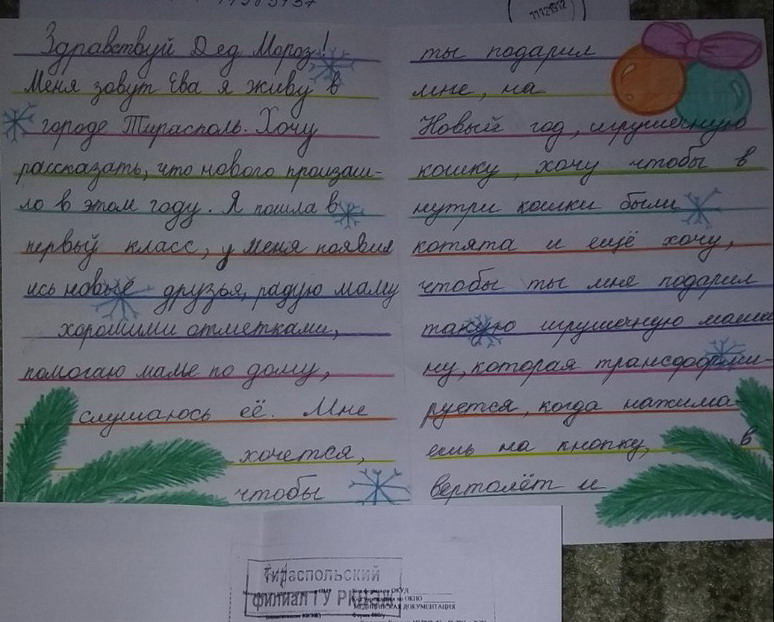 Здравствуй Дед Мороз!
Меня зовут Ева я живу в
городе Тирасполь. Хочу
рассказать, что нового произаш-
ло в этом году. Я пошла в
первый класс, у меня появил
ись новые друзья, радую маму
хорошими отметками,
помогаю маме по дому,
слушаюсь её. Мне
хочется,
чтобы
ты подарил
мне, на
Новый год, игрушечную
кошку, хочу чтобы в
нутри кошки были
котята и ещё хочу,
чтобы ты мне подарил
такую игрушечную маши
ну, которая трансформи-
руется, когда нажима-
ешь на кнопку, в
вертолёт и
Тираспольский
филиал ГУ
МЕДИЦИНСКАЯ ДОКУМЕНТАЦИЯ